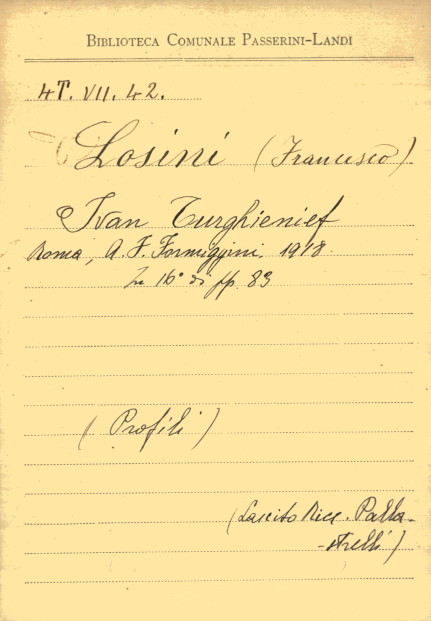 BIBLIOTECA COMUNALE PASSERINI-LANDI
4T. VII. 42.
Losini (Francesco)
Ivan Turghienief
Roma, A. F. Formiggini, 1918.
In 16° di pp. 83
(Profili)
(Lascito Ricc. Palla-
-strelli)